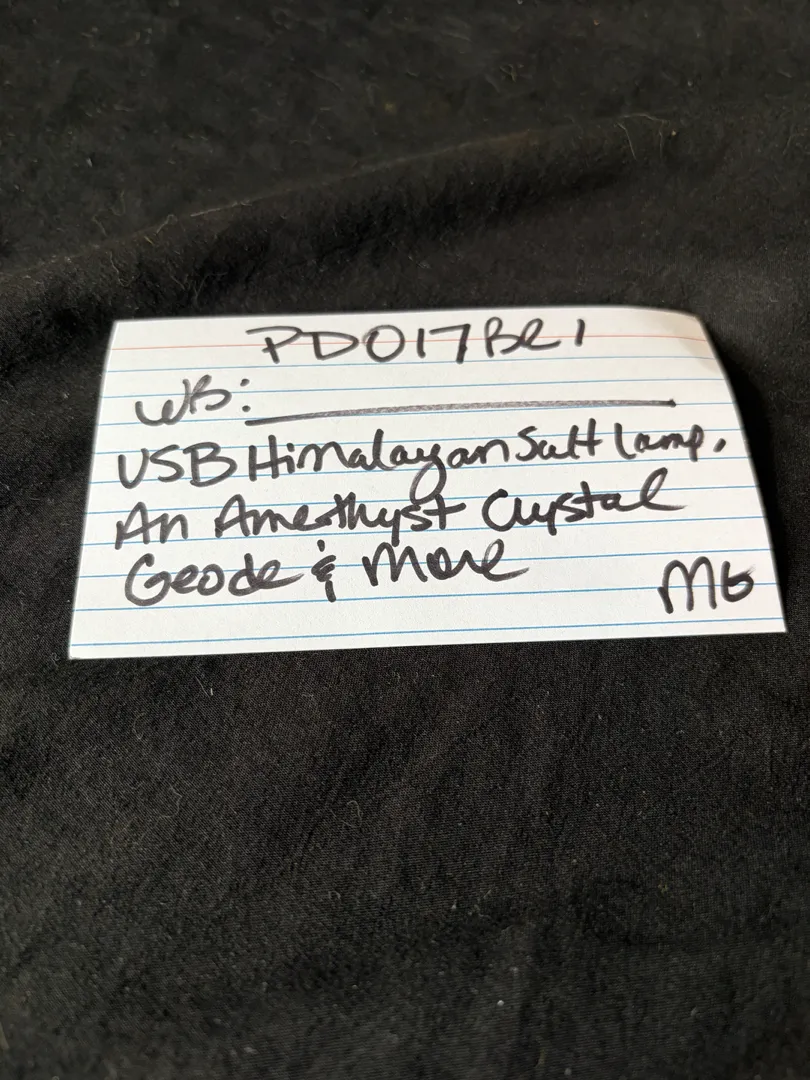 PD017BR1
WB:
USB Himalayan Salt Lamp.
An Amethyst Crystal
Geode & More
MG